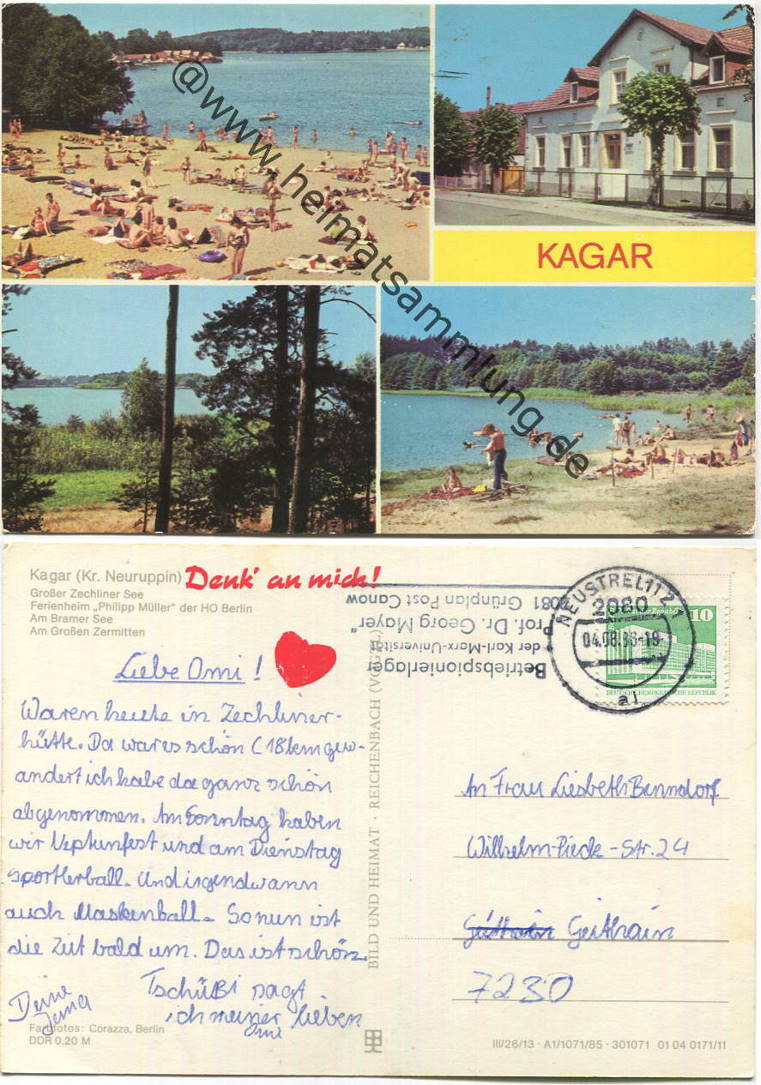 @www.heimatsammlung.de
KAGAR
Kagar (Kr. Neuruppin)
Großer Zechliner See
Ferienheim „Philipp Müller" der HO Berlin
Am Bramer See
Am Großen Zermitten
Denk' an mich!
Liebe Omi!
Waren heute in Zechliner-
hütte. Da war es schön (18 km gew-
andert ich habe da ganz schön
abgenommen. Am Sonntag haben
wir Neptunfest und am Dienstag
sportlerball. Und irgendwann
auch Maskenball. So nun ist
die Zeit bald um. Das ist schön.
Tschüßi sagt
ich meiner lieben
Omi
Deine
Jana
Farbfotos: Corazza, Berlin
DDR 0,20 M
BILD UND HEIMAT · REICHENBACH (VOGTL)
Betriebspionierlager
der Karl-Marx-Universität
"Prof. Dr. Georg Mayer"
2081 Grünplan Post Canow
NEUSTRELITZ 1
2080
04.08.86-19
a1
10
DEUTSCHE DEMOKRATISCHE REPUBLIK
An Frau Liesbeth Benndorf
Wilhelm-Piede-Str. 24
Geithain
7230
III/26/13 · A1/1071/85 · 301071 01 04 0171/11